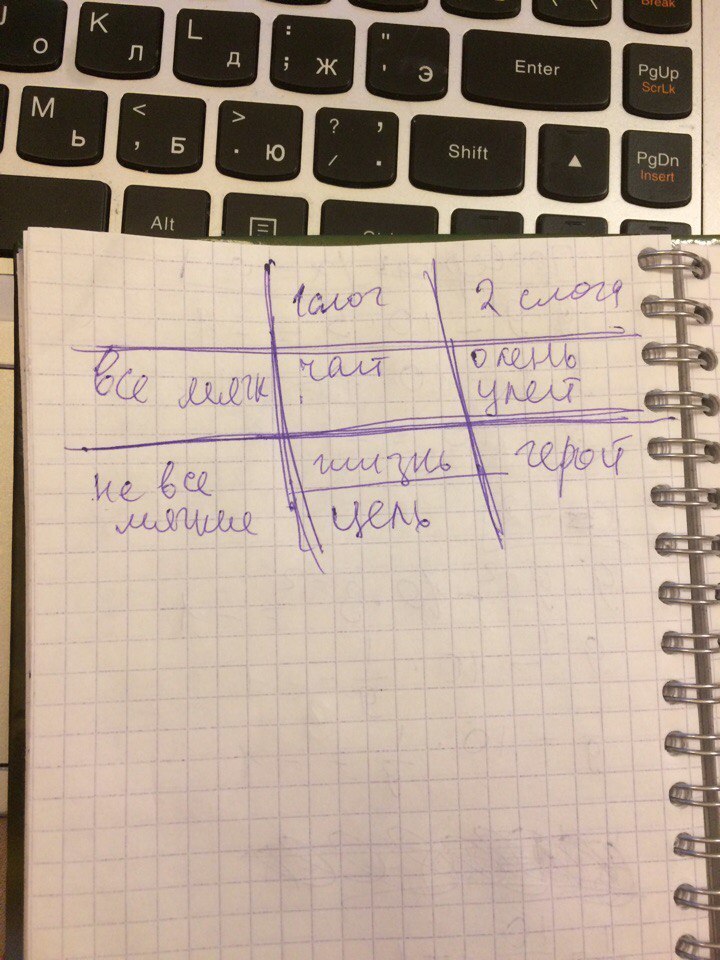 J О
K Л
L Д
: ; Ж
" ' Э
Enter
Break
PgUp
ScrLk
М Ь
< , Б
> . Ю
? / , .
Shift
▲
PgDn
Insert
Alt
1 слог
2 слога
все мягк
чай
олень
улей
не все
мягкие
жизнь
герой
цель